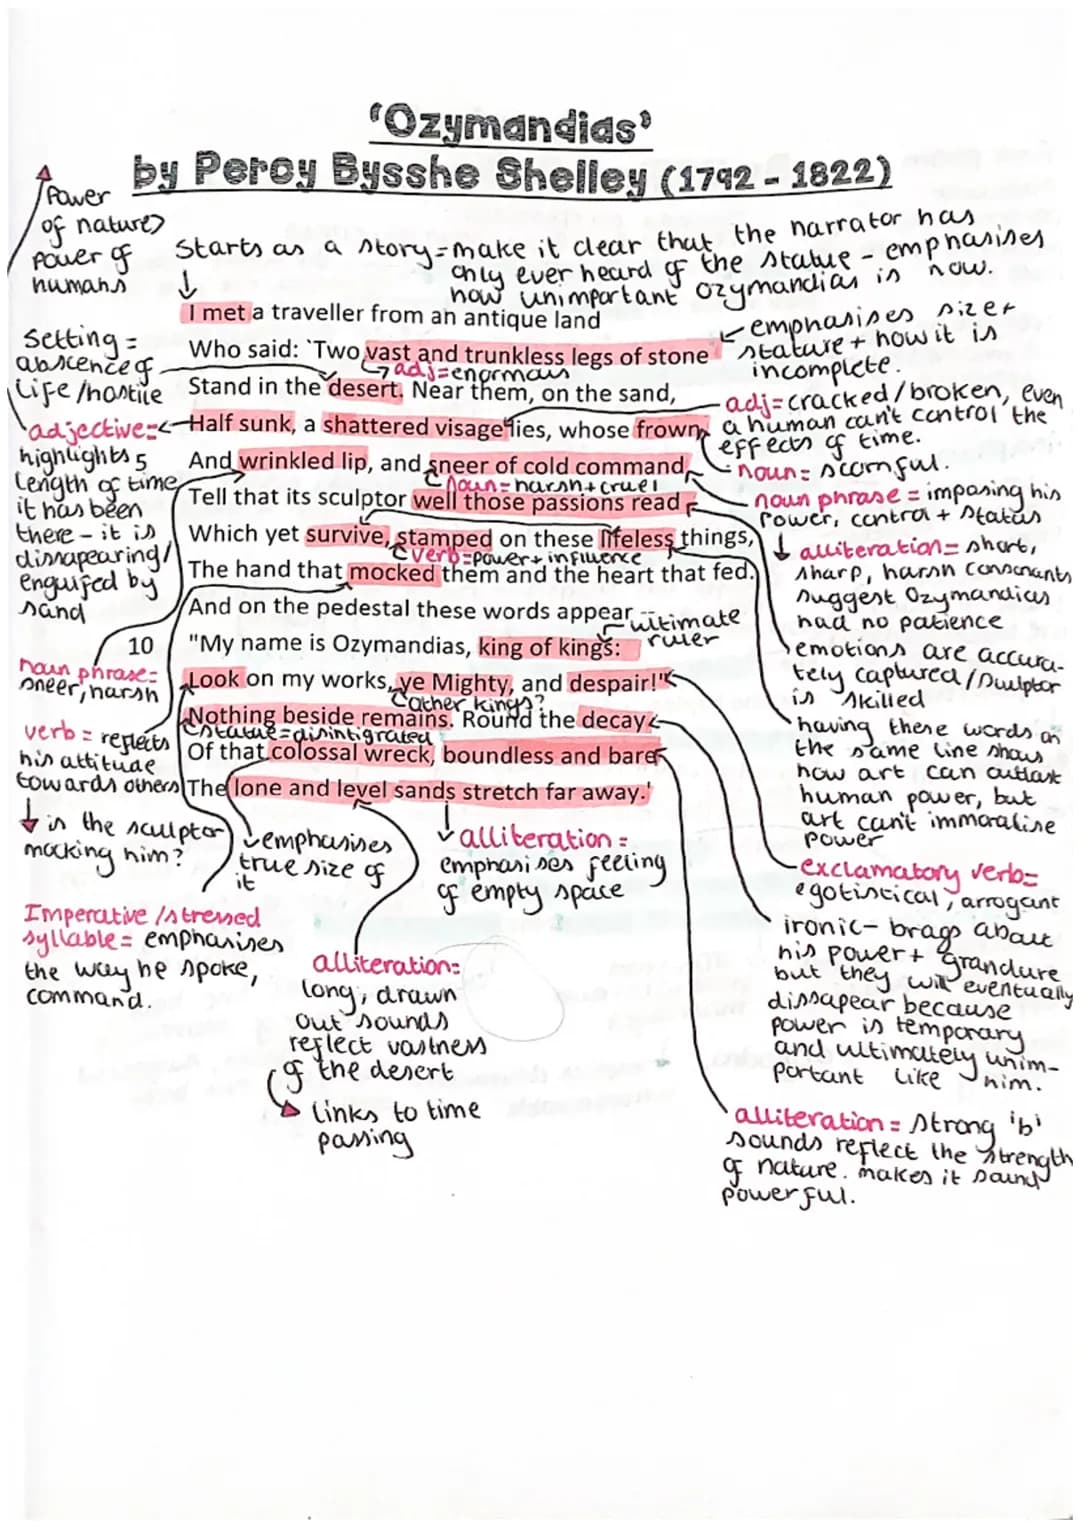 'Ozymandias'
by Percy Bysshe Shelley (1792 - 1822)
Power
of nature>
power of
humans
Starts as a story = make it clear that the narrator has
only ever heard of the statue - emphasises
how unimportant Ozymandias is now.
I met a traveller from an antique land
Who said: `Two vast and trunkless legs of stone
adj = enormous
Stand in the desert. Near them, on the sand,
Half sunk, a shattered visage lies, whose frown,
And wrinkled lip, and sneer of cold command,
noun = harsh + cruel
5
Tell that its sculptor well those passions read
Which yet survive, stamped on these lifeless things,
verb = power + influence
The hand that mocked them and the heart that fed.
And on the pedestal these words appear --
ultimate
ruler
10
"My name is Ozymandias, king of kings:
Look on my works, ye Mighty, and despair!"
other kings?
Nothing beside remains. Round the decay
statue = disintigrated
Of that colossal wreck, boundless and bare
The lone and level sands stretch far away.'
Setting =
abscence of
life / hostile
adjective =
highlights
length of time
it has been
there - it is
dissapearing/
engulfed by
sand
noun phrase =
sneer, harsh
verb = reflects
his attitude
towards others
is the sculptor
mocking him?
Imperative / stressed
syllable = emphasises
the way he spoke,
command.
emphasises
true size of
it
alliteration =
long, drawn
out sounds
reflect vastness
of the desert
links to time
passing
alliteration =
emphasises feeling
of empty space
emphasises size +
stature + how it is
incomplete.
adj = cracked / broken, even
a human can't control the
effects of time.
noun = scornful.
noun phrase = imposing his
power, control + status
alliteration = short,
sharp, harsh consonants
suggest Ozymandias
had no patience
emotions are accura-
tely captured / sculptor
is skilled
having these words on
the same line shows
how art can outlast
human power, but
art can't immoralise
power
exclamatory verb =
egotistical, arrogant
ironic - brags about
his power + grandure
but they will eventually
dissapear because
power is temporary
and ultimately unim-
portant like him.
alliteration = strong 'b'
sounds reflect the strength
of nature. makes it sound
powerful.